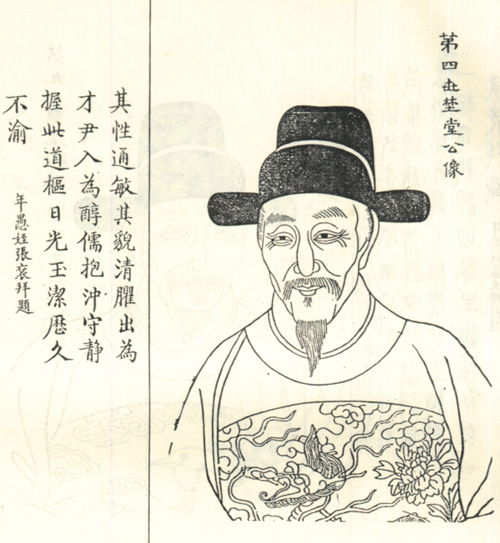 第四世埜堂公像
其性通敏其貌清臞出為
才尹入為醇儒抱沖守靜
握此道樞日光玉潔歷久
不渝
年愚姪張袞拜題